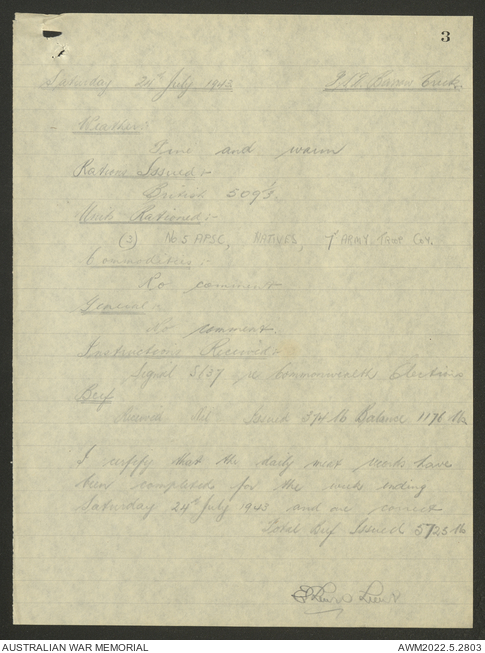 3
Saturday 24th July 1943 Barrow Creek.
Weather:
Fine and warm
Rations Issued:-
British 509½.
Units Rationed:-
(3) No. 5 APSC, NATIVES, ARMY Trans Coy.
Commodities:-
No comment
General:-
No comment.
Instructions Received:-
Signal 5/37 Commonwealth Elections
Beef
Received Nil Issued 374 lb Balance 1176 lbs
I certify that the daily meat records have
been completed for the week ending
Saturday 24th July 1943 and are correct
Total Beef Issued lb
Lieut
AUSTRALIAN WAR MEMORIAL AWM2022.5.2803